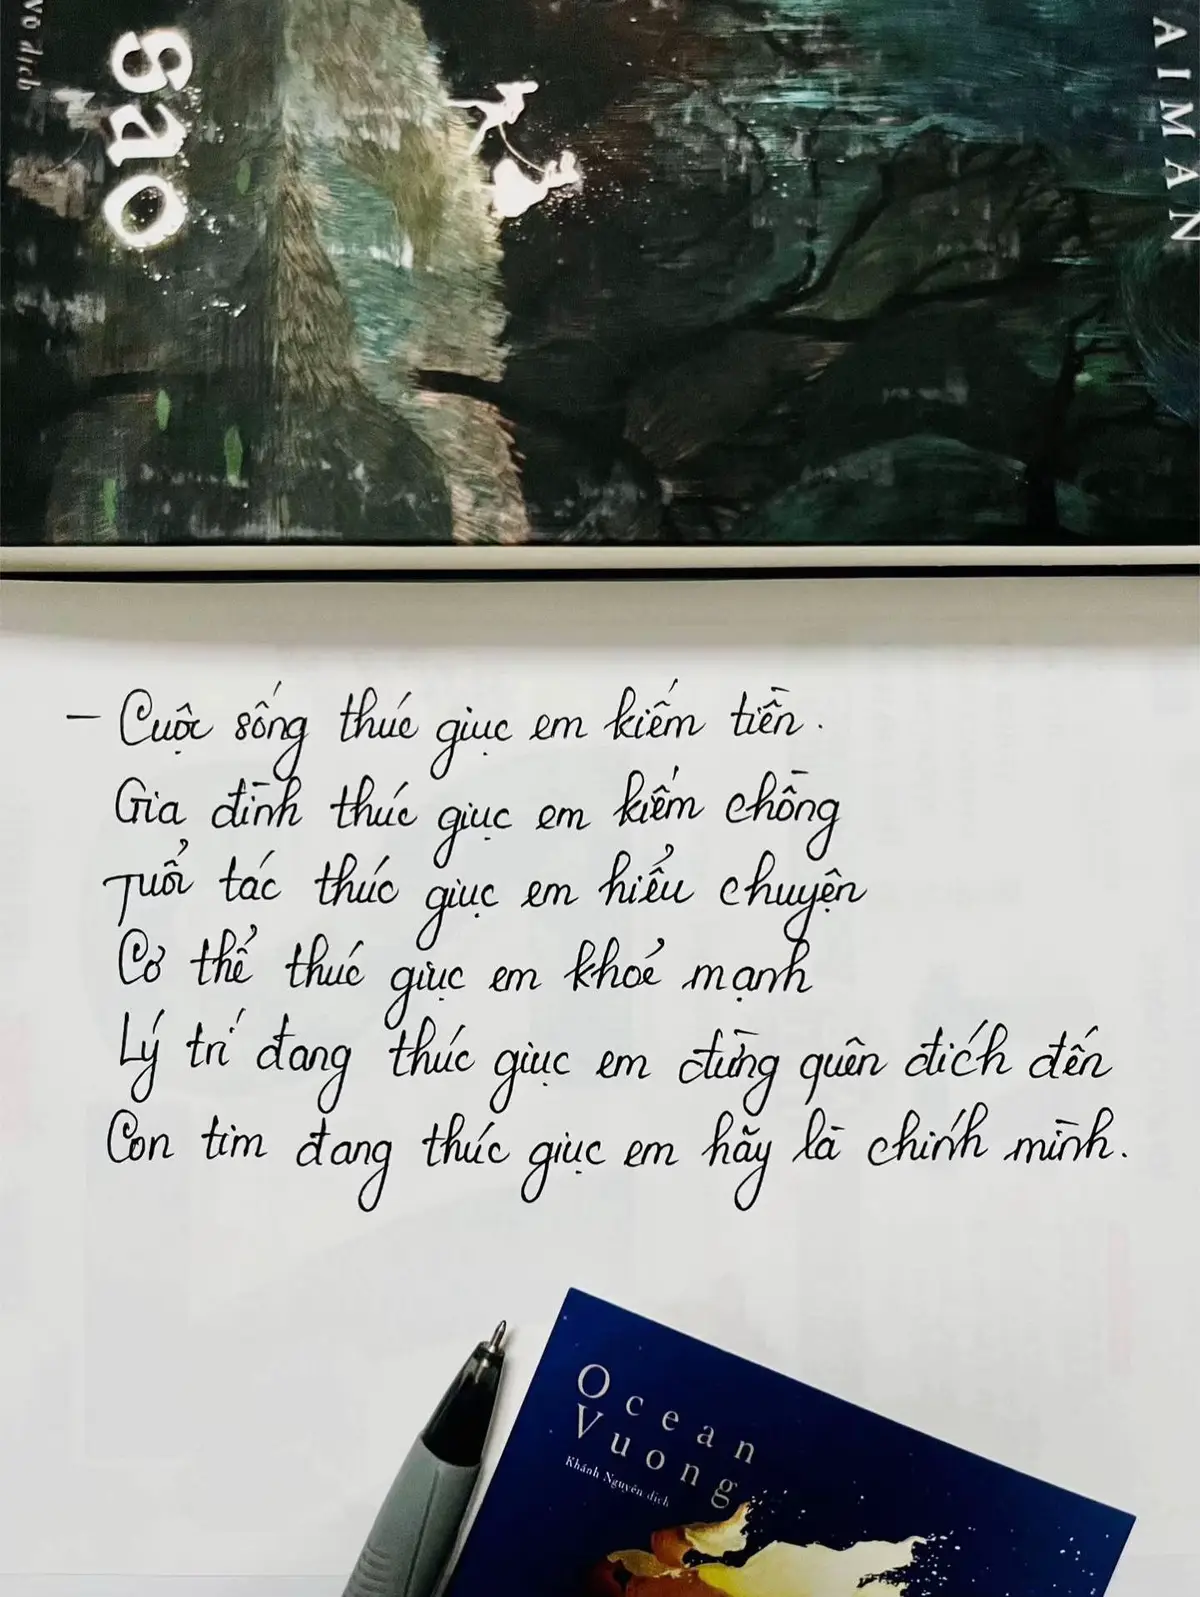 võ dịch
sao
AIMAN
– Cuộc sống thúc giục em kiếm tiền.
Gia đình thúc giục em kiếm chồng
Tuổi tác thúc giục em hiểu chuyện
Cơ thể thúc giục em khoẻ mạnh
Lý trí đang thúc giục em đừng quên đích đến
Con tim đang thúc giục em hãy là chính mình.
Ocean
Vuong
Khánh Nguyên dịch